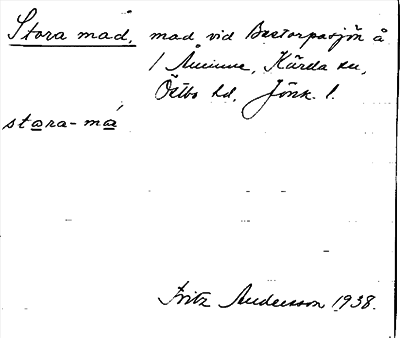 Stora mad, mad vid Bastarpasjön å
1 Åminne, Kärda sn,
Östbo hd, Jönk. l.
stara-má
Fritz Andersson 1938.